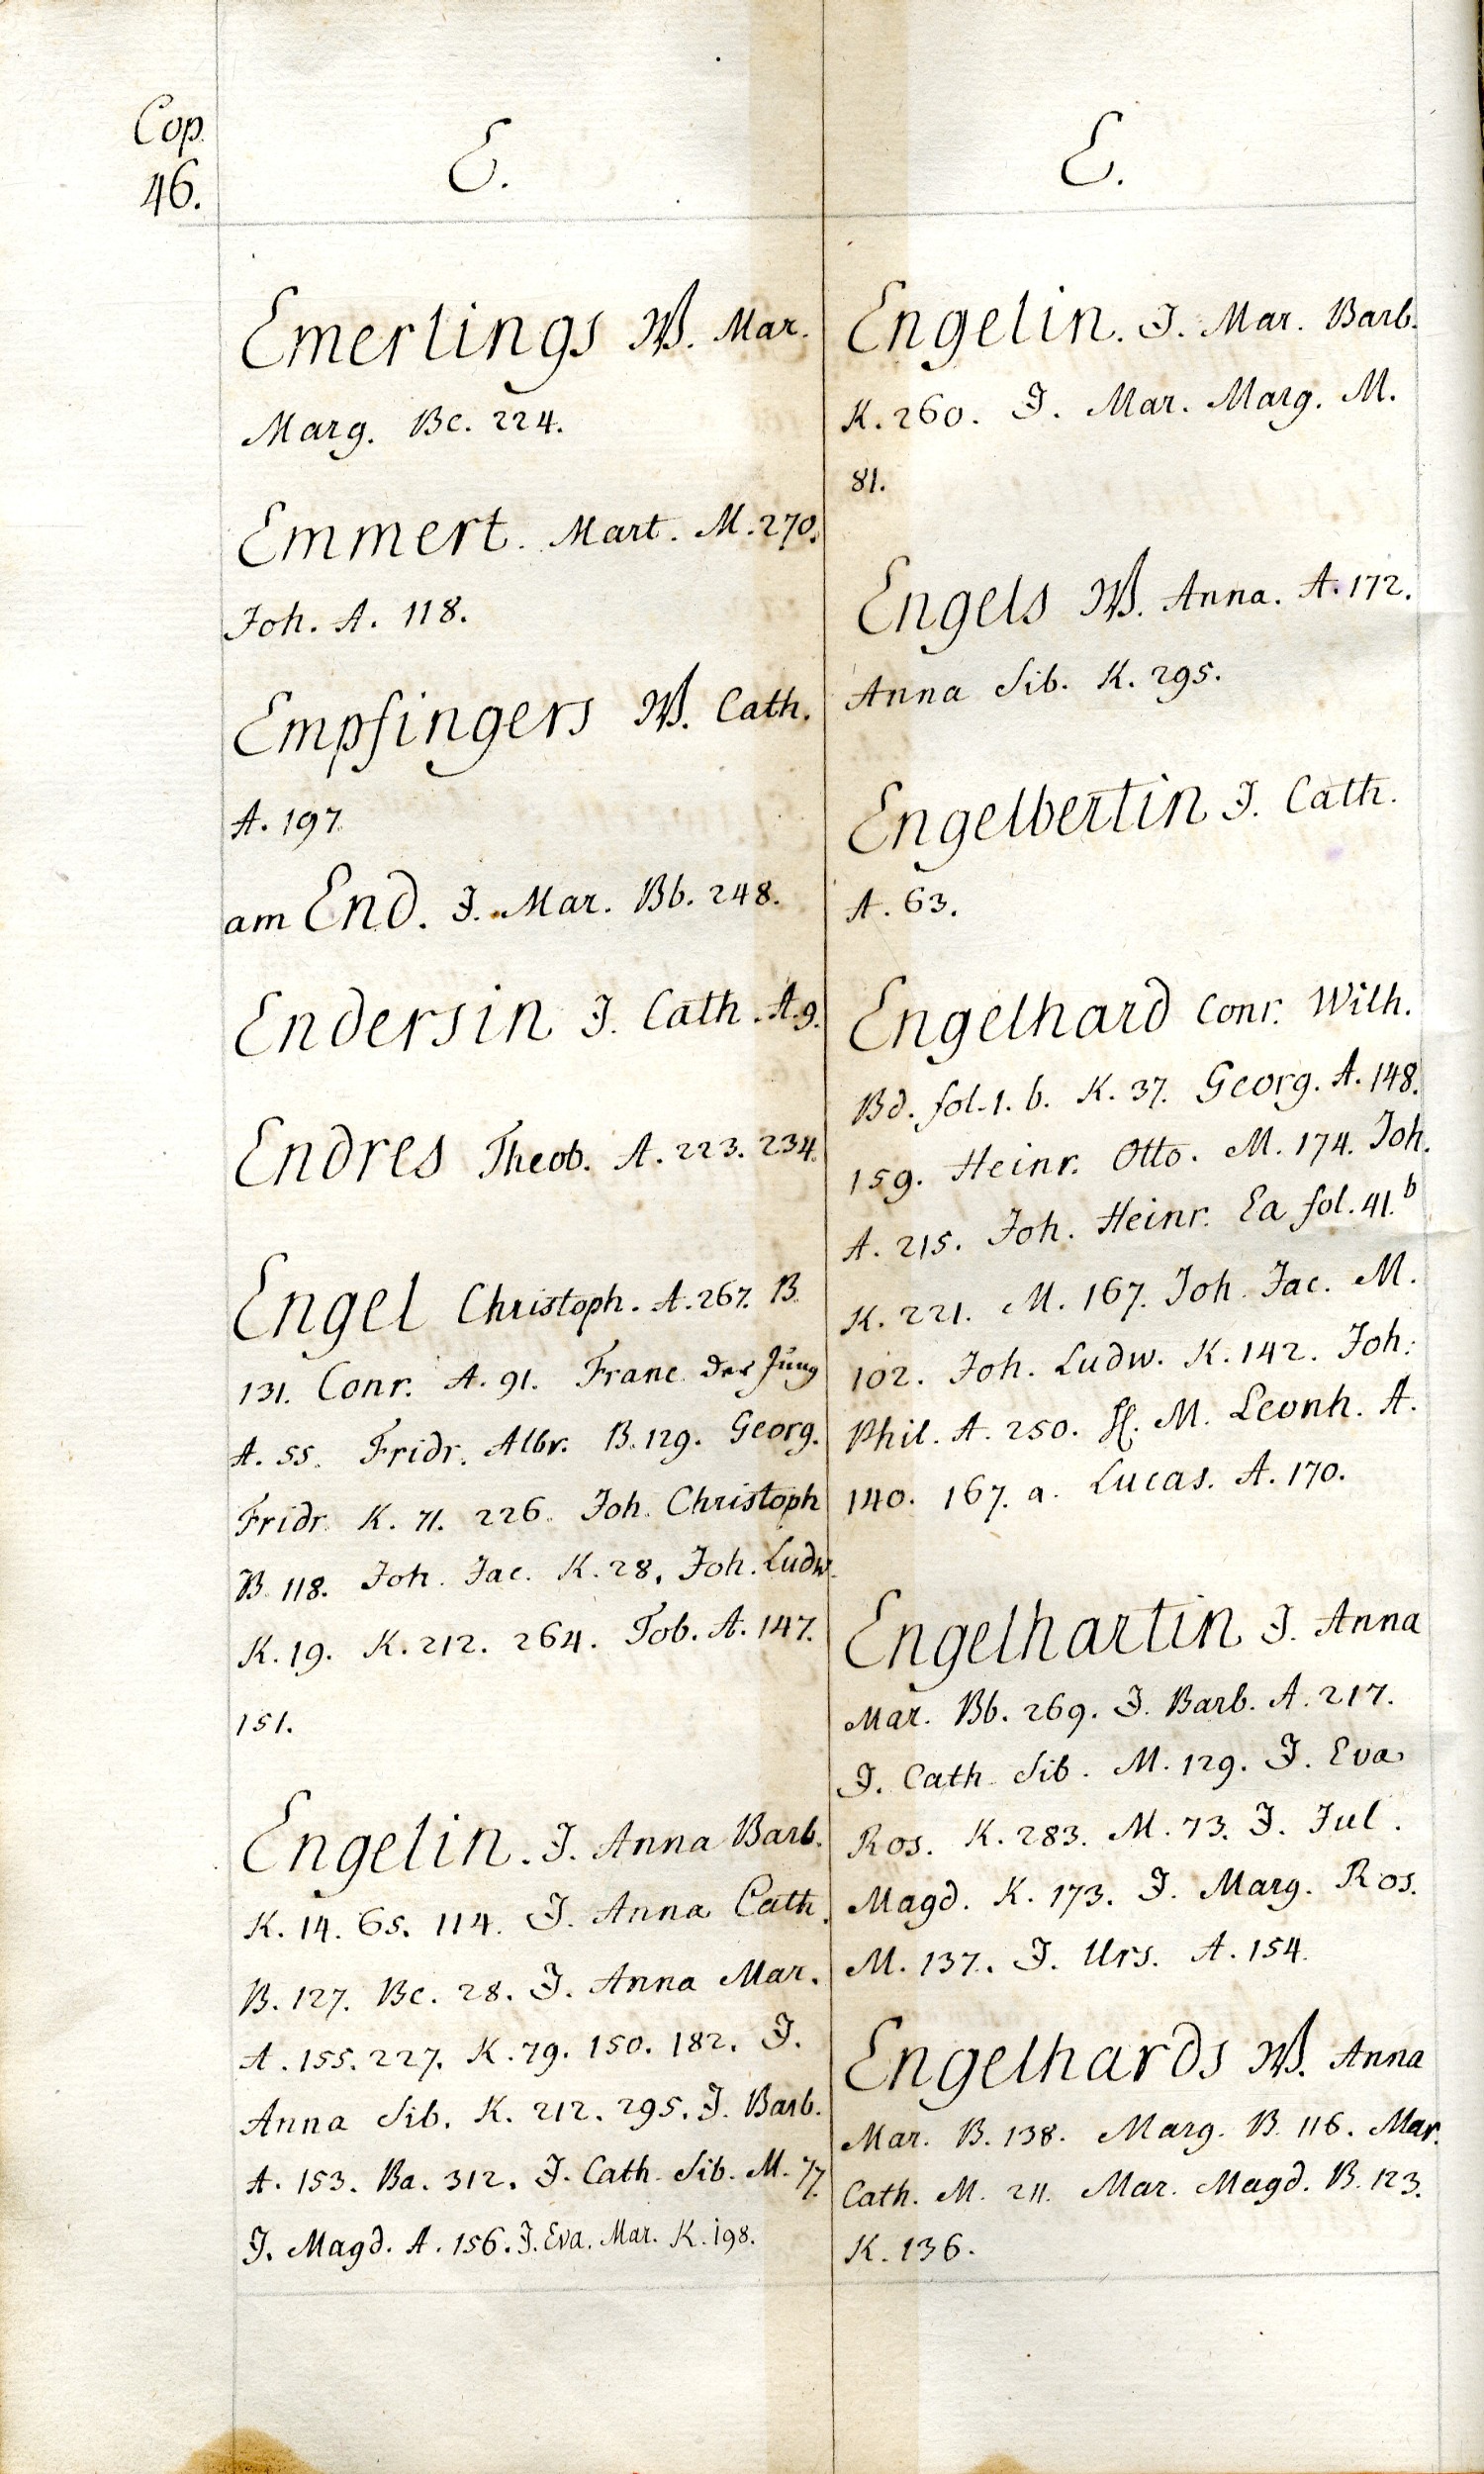 Cop.
46.
E.
Emerlings W. Mar.
Marg. Bc. 224.
Emmert. Mart. M. 270.
Joh. A. 118.
Empfingers W. Cath.
A. 197.
am End. J. Mar. Bb. 248.
Endersin J. Cath. A. 9.
Endres Theob. A. 223. 234.
Engel Christoph. A. 267. B.
131. Conr. A. 91. Franc. der Jung
A. 55. Fridr. Albr. B. 129. Georg.
Fridr. K. 71. 226. Joh. Christoph
B. 118. Joh. Jac. K. 28. Joh. Ludw.
K. 19. K. 212. 264. Tob. A. 147.
151.
Engelin. J. Anna Barb.
K. 14. 65. 114. J. Anna Cath.
B. 127. Bc. 28. J. Anna Mar.
A. 155. 227. K. 79. 150. 182. J.
Anna Sib. K. 212. 295. J. Barb.
A. 153. Ba. 312. J. Cath. Sib. M. 77.
J. Magd. A. 156. J. Eva. Mar. K. 198.
E.
Engelin. J. Mar. Barb.
K. 260. J. Mar. Marg. M.
81.
Engels W. Anna. A. 172.
Anna Sib. K. 295.
Engelbertin J. Cath.
A. 63.
Engelhard Conr. Wilh.
Bd. fol. 1. b. K. 37. Georg. A. 148.
159. Heinr. Otto. M. 174. Joh.
A. 215. Joh. Heinr. Ea fol. 41. b
K. 221. M. 167. Joh. Jac. M.
102. Joh. Ludw. K. 142. Joh:
Phil. A. 250. M. Leonh. A.
140. 167. a. Lucas. A. 170.
Engelhartin J. Anna
Mar. Bb. 269. J. Barb. A. 217.
J. Cath. Sib. M. 129. J. Eva
Ros. K. 283. M. 73. J. Jul.
Magd. K. 173. J. Marg. Ros.
M. 137. J. Urs. A. 154.
Engelhards W. Anna
Mar. B. 138. Marg. B. 116. Mar.
Cath. M. 211. Mar. Magd. B. 123.
K. 136.